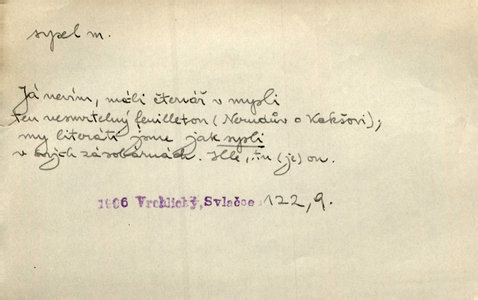 sypel m.
Já nevím, má-li čtenář v mysli
ten nesmrtelný feuilleton (Nerudův o Kakšovi);
my literáti jsme jak sypli
v svých zásobárnách. Hle, tu (je) on.
1906 Vrchlický, Svlačce 122, 9.